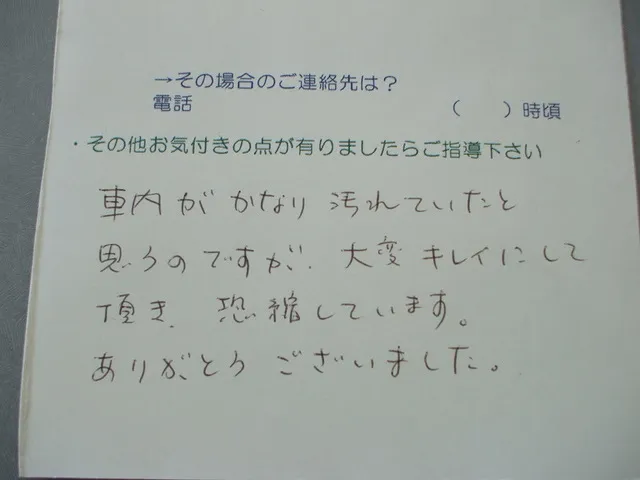 →その場合のご連絡先は?
電話 (　　)時頃
・その他お気付きの点が有りましたらご指導下さい
車内がかなり汚れていたと
思うのですが、大変キレイにして
頂き、恐縮しています。
ありがとうございました。